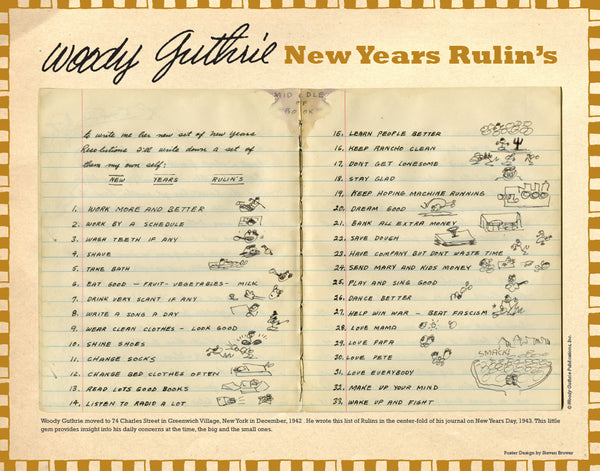 Woody Guthrie New Years Rulin's
MIDDLE
OF
BOOK
to write me her new set of New Years
Resolutions I'll write down a set of
them my own self:
NEW YEARS RULIN'S
1. WORK MORE AND BETTER
2. WORK BY A SCHEDULE
3. WASH TEETH IF ANY
4. SHAVE
5. TAKE BATH
6. EAT GOOD - FRUIT - VEGETABLES - MILK
7. DRINK VERY SCANT IF ANY
8. WRITE A SONG A DAY
9. WEAR CLEAN CLOTHES - LOOK GOOD
10. SHINE SHOES
11. CHANGE SOCKS
12. CHANGE BED CLOTHES OFTEN
13. READ LOTS GOOD BOOKS
14. LISTEN TO RADIO A LOT
15. LEARN PEOPLE BETTER
16. KEEP RANCHO CLEAN
17. DONT GET LONESOME
18. STAY GLAD
19. KEEP HOPING MACHINE RUNNING
20. DREAM GOOD
21. BANK ALL EXTRA MONEY
22. SAVE DOUGH
23. HAVE COMPANY BUT DONT WASTE TIME
24. SEND MARY AND KIDS MONEY
25. PLAY AND SING GOOD
26. DANCE BETTER
27. HELP WIN WAR - BEAT FASCISM
28. LOVE MAMA
29. LOVE PAPA
30. LOVE PETE
SMACK!
31. LOVE EVERYBODY
32. MAKE UP YOUR MIND
33. WAKE UP AND FIGHT
© Woody Guthrie Publications, Inc.
Woody Guthrie moved to 74 Charles Street in Greenwich Village, New York in December, 1942 . He wrote this list of Rulins in the center-fold of his journal on New Years Day, 1943. This little
gem provides insight into his daily concerns at the time, the big and the small ones.
Poster Design by Steven Brower